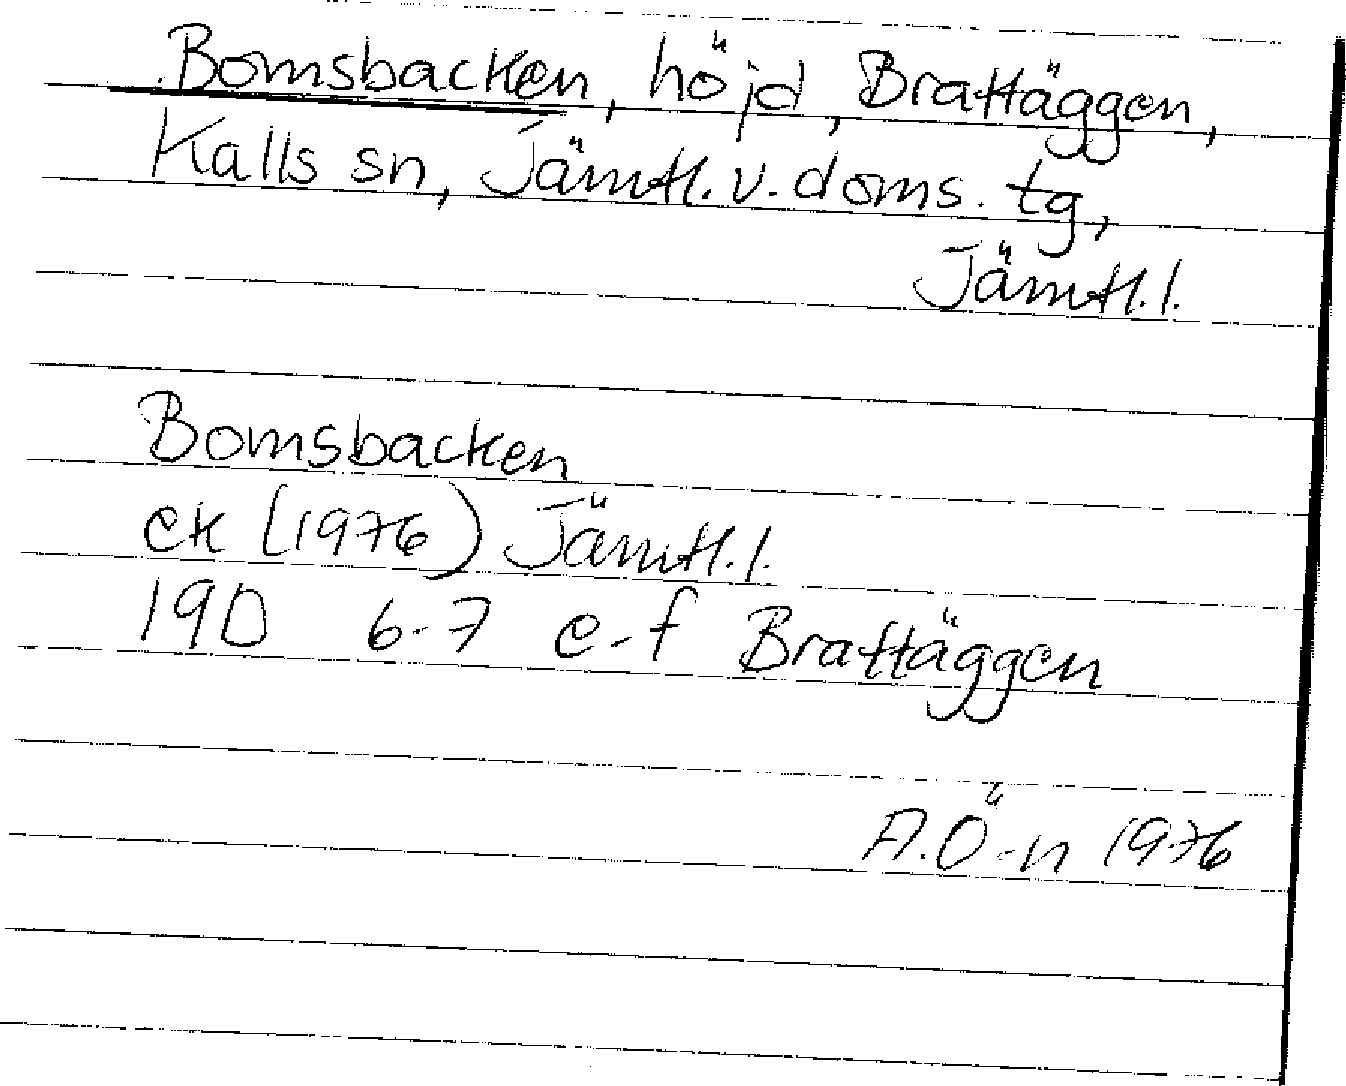 Bomsbacken, höjd, Brattäggen,
Kalls sn, Jämtl. v. doms. tg,
Jämtl. l.
Bomsbacken
ek [1976) Jämtl. l.
19D 6-7 e-f Brattäggen
A.Ö-n 1976